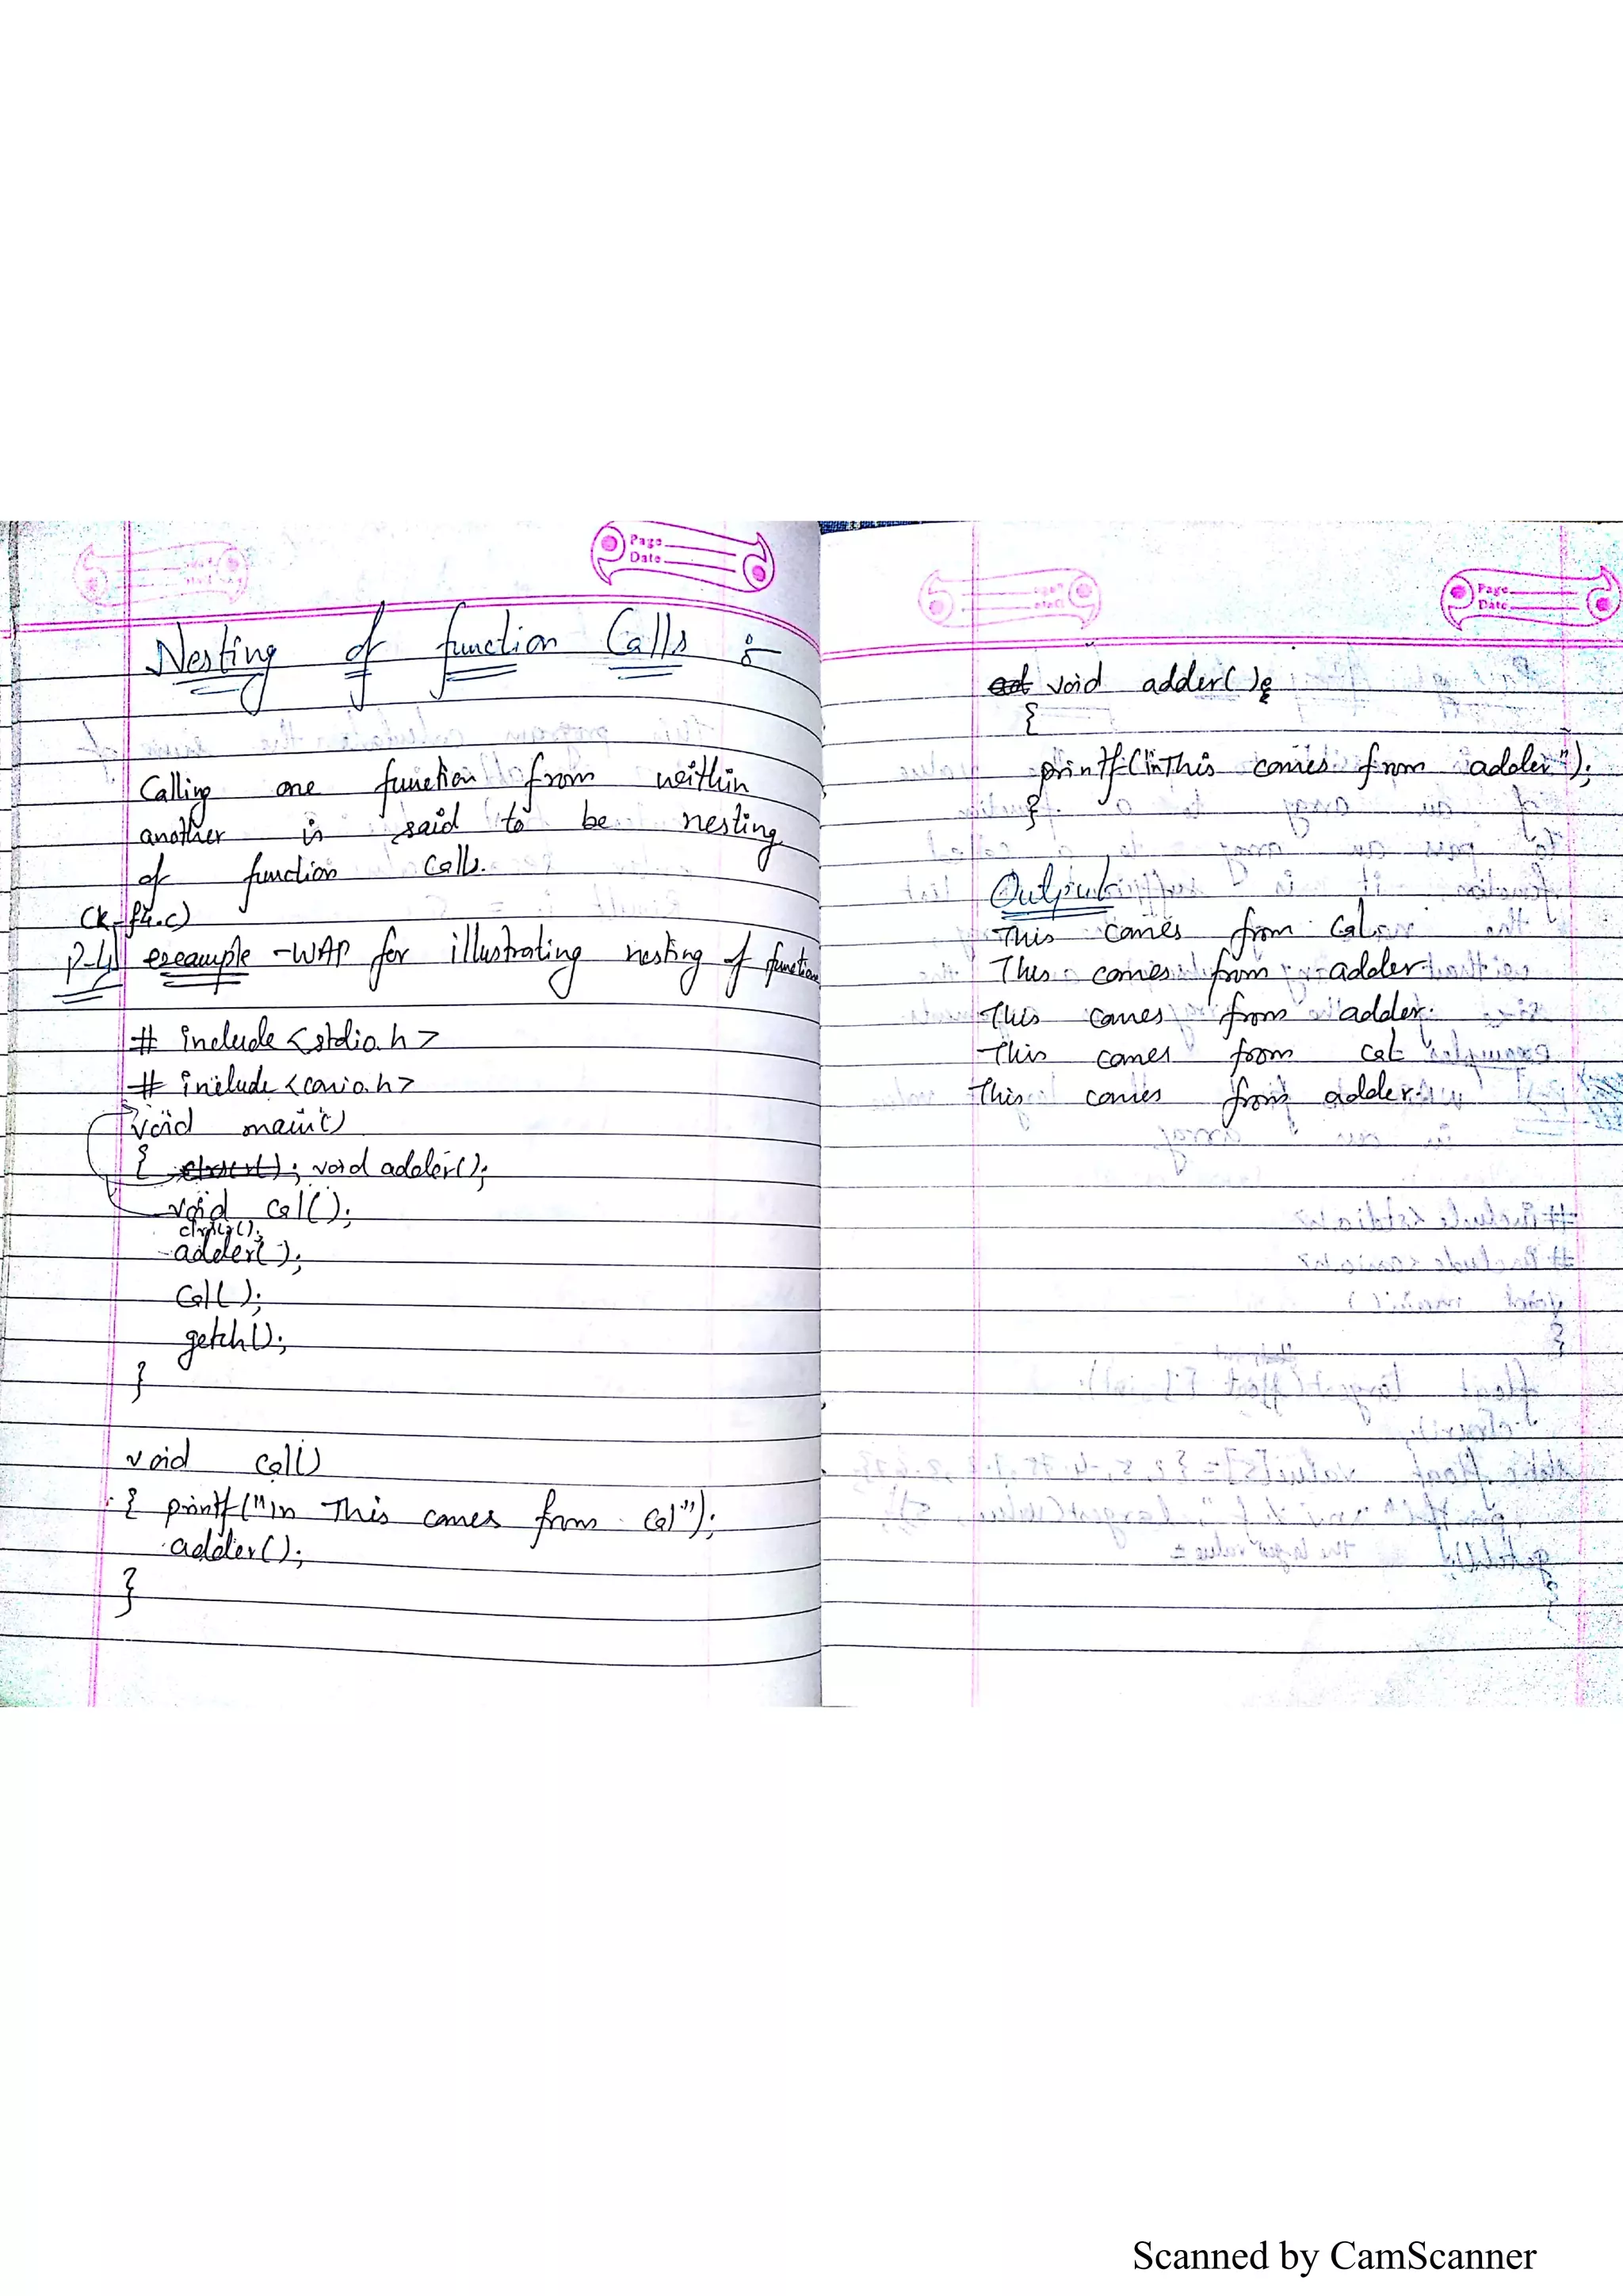 Page
Date
Nesting of function Calls :-
Calling one function from within
another is said to be nesting
of function calls.
(k-f4.c)
P-4 example - WAP for illustrating nesting of function
# include <stdio.h>
# include <conio.h>
void main()
{ void adder();
void cal();
clrscr();
adder();
cal();
getch();
}
void cal()
{ printf("\n This comes from cal");
adder();
}
Page
Date
void adder()
{
printf("\nThis comes from adder");
}
Output
This comes from cal.
This comes from adder
This comes from adder.
This comes from cal
This comes from adder.
Scanned by CamScanner